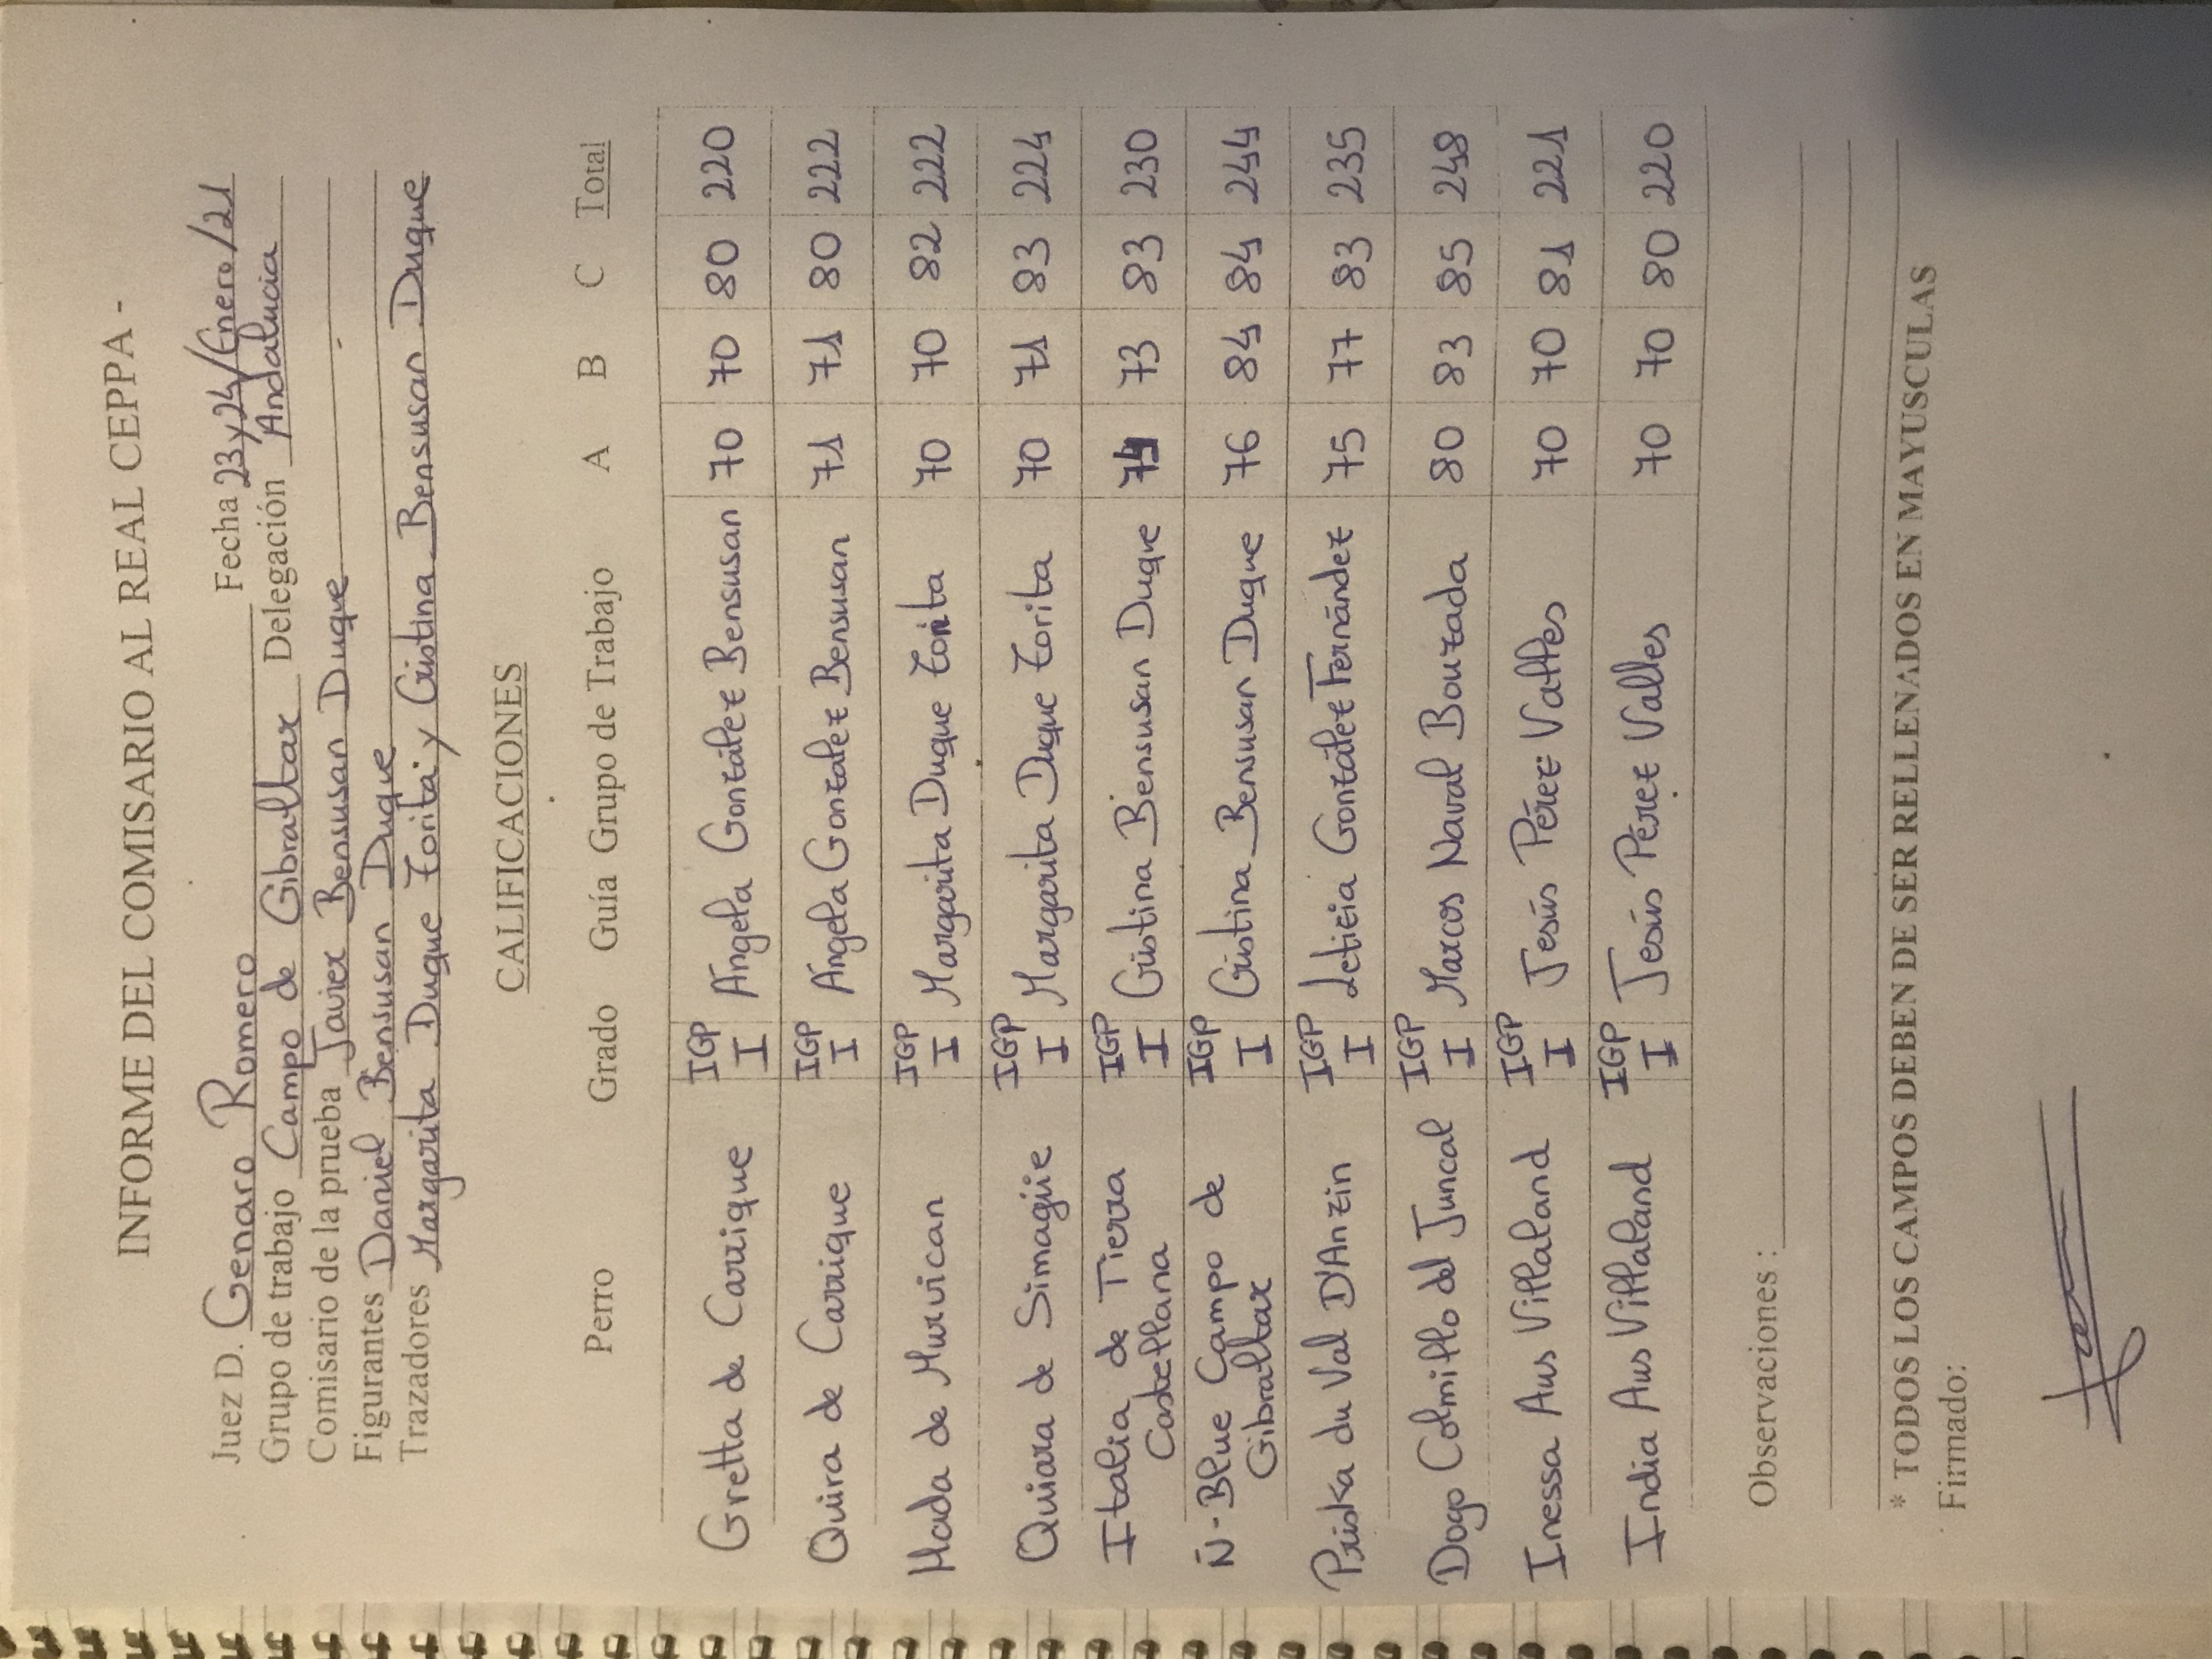 INFORME DEL COMISARIO AL REAL CEPPA -
Juez D. Genaro Romero Fecha 23y24/Enero/21
Grupo de trabajo Campo de Gibraltar Delegación Andalucia
Comisario de la prueba Javier Bensusan Duque
Figurantes Daniel Bensusan Duque
Trazadores Margarita Duque Zorita y Cristina Bensusan Duque
CALIFICACIONES
Perro Grado Guía Grupo de Trabajo A B C Total
Gretta de Carrique IGP I Ángela González Bensusan 70 70 80 220
Quira de Carrique IGP I Ángela González Bensusan 71 71 80 222
Hada de Murvican IGP I Margarita Duque Zorita 70 70 82 222
Quiara de Simagüie IGP I Margarita Duque Zorita 70 71 83 224
Italia de Tierra Castellana IGP I Cristina Bensusan Duque 74 73 83 230
Ñ-Blue Campo de Gibraltar IGP I Cristina Bensusan Duque 76 84 84 244
Priska du Val D'Anzin IGP I Leticia González Fernández 75 77 83 235
Dogo Colmillo del Juncal IGP I Marcos Naval Bouzada 80 83 85 248
Inessa Aus Villaland IGP I Jesús Pérez Valles 70 70 81 221
India Aus Villaland IGP I Jesús Pérez Valles 70 70 80 220
Observaciones :
* TODOS LOS CAMPOS DEBEN DE SER RELLENADOS EN MAYUSCULAS
Firmado: